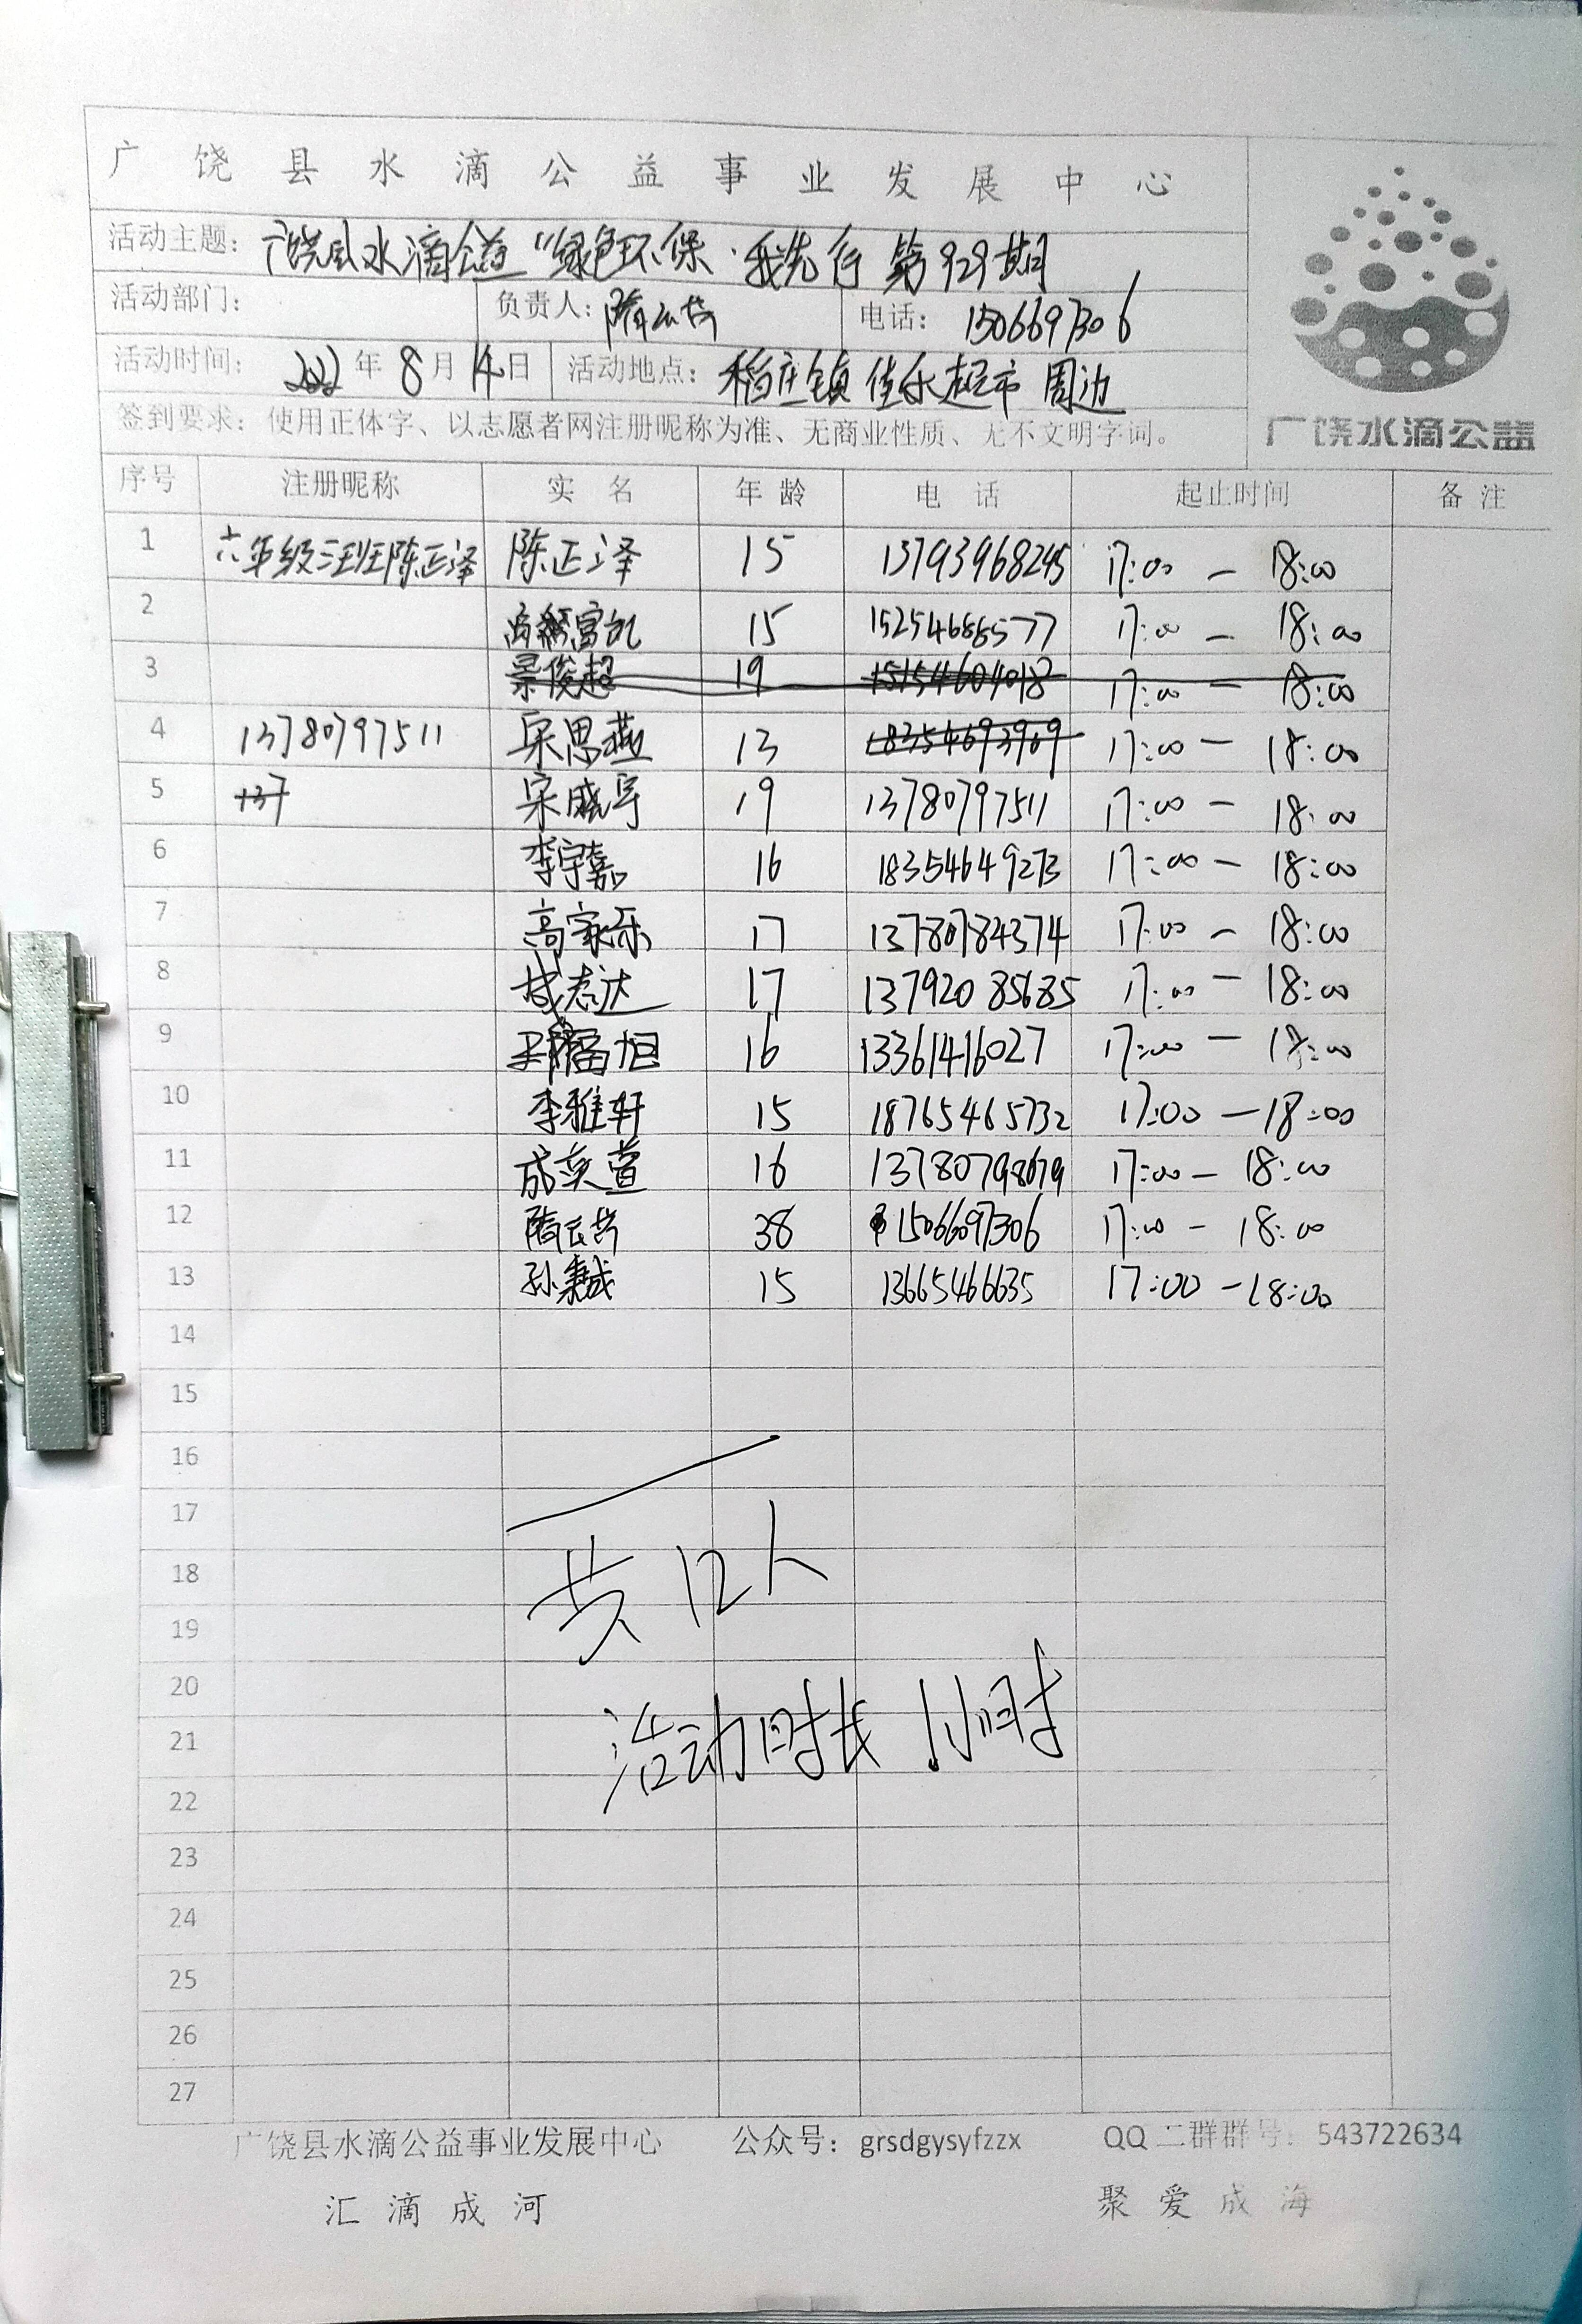 广饶县水滴公益事业发展中心
活动主题：广饶县水滴公益"绿色环保·我先行 第929期
活动部门： 负责人：隋云芳 电话：15066097306
活动时间：2022年8月14日 活动地点：稻庄镇佳乐超市周边
签到要求：使用正体字、以志愿者网注册昵称为准、无商业性质、无不文明字词。
广饶水滴公益
序号 注册昵称 实名 年龄 电话 起止时间 备注
1 六年级三班陈正泽 陈正泽 15 13793968245 17:00 — 18:00
2 富凯 15 17:00 — 18:00
3 景俊超 19 15154604018 17:00 — 18:00
4 13780797511 宋思燕 13 18354693969 17:00 — 18:00
5 137 宋晓宇 19 13780797511 17:00 — 18:00
6 李宇嘉 16 18354649273 17:00 — 18:00
7 高家乐 17 13780784374 17:00 — 18:00
8 志达 17 13792085685 17:00 — 18:00
9 旭 16 13361416027 17:00 — 18:00
10 李雅轩 15 18765465732 17:00 — 18:00
11 成奕萱 16 13780798679 17:00 — 18:00
12 隋云芳 38 15066097306 17:00 — 18:00
13 孙秉诚 15 13665466635 17:00 — 18:00
14
15
16
17
18 共12人
19
20
21 活动时长1小时
22
23
24
25
26
27
广饶县水滴公益事业发展中心 公众号：grsdgysyfzzx QQ二群群号：543722634
汇滴成河 聚爱成海